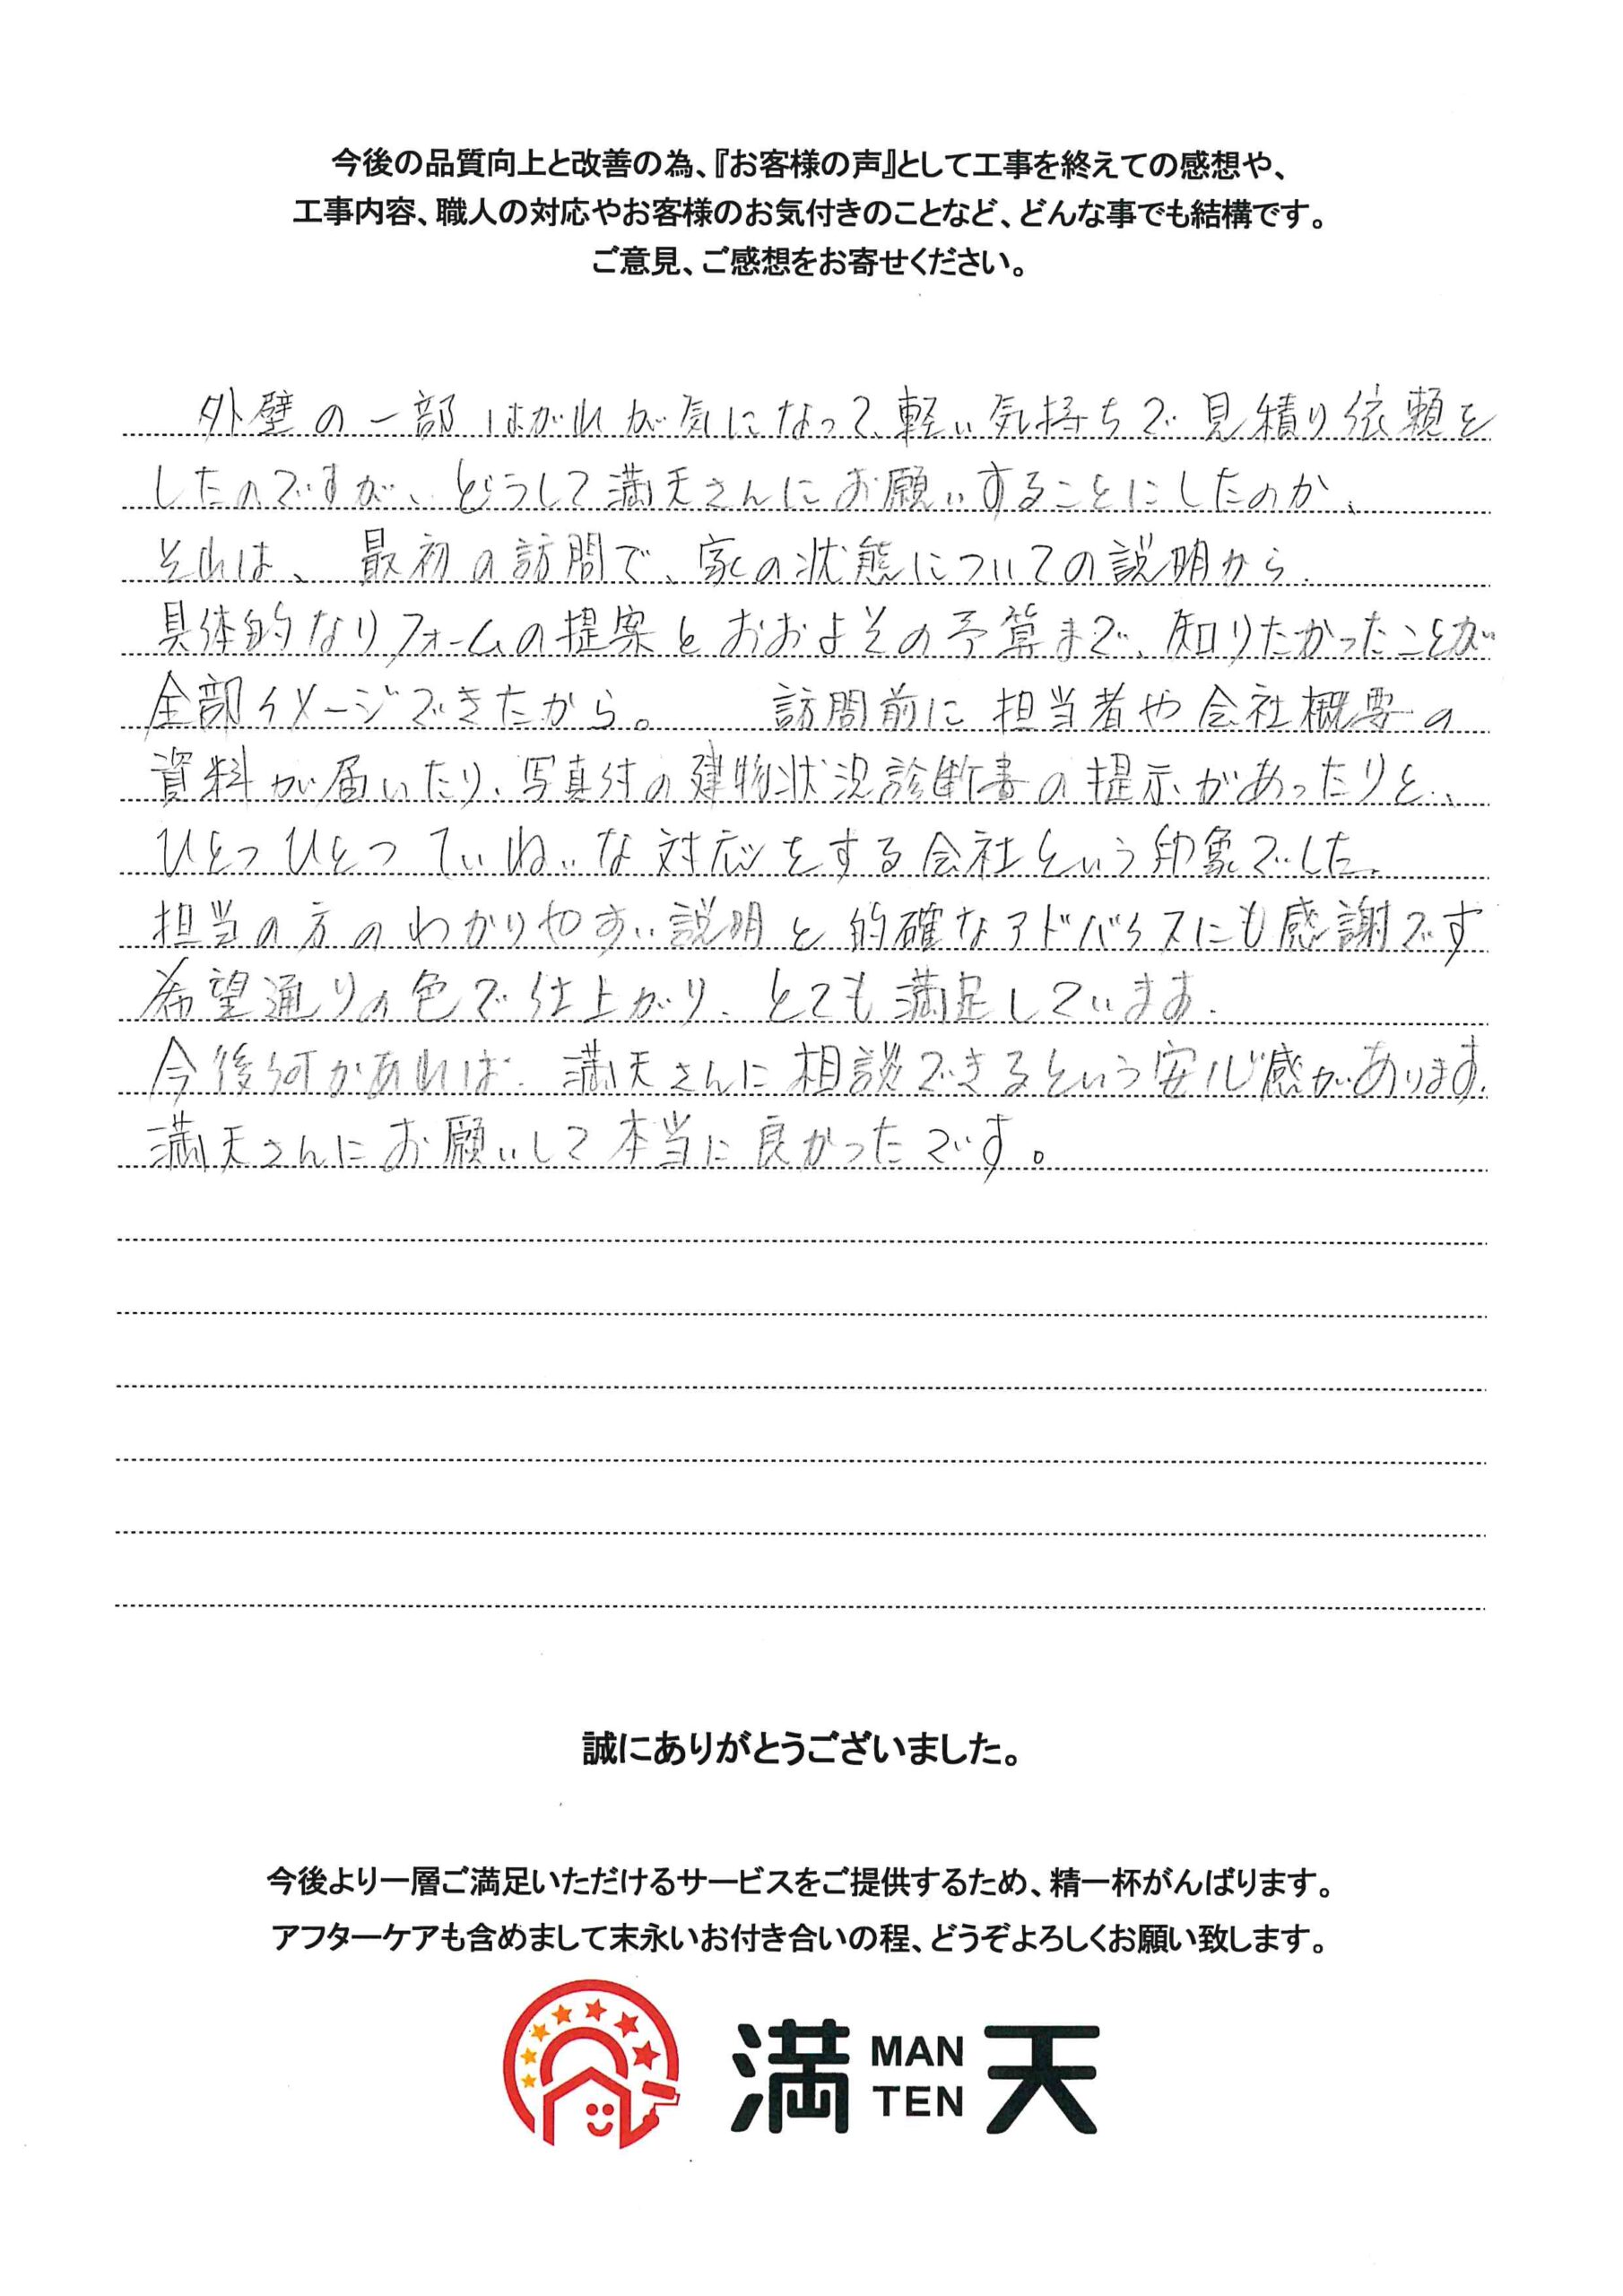 今後の品質向上と改善の為、『お客様の声』として工事を終えての感想や、
工事内容、職人の対応やお客様のお気付きのことなど、どんな事でも結構です。
ご意見、ご感想をお寄せください。
外壁の一部はがれが気になって、軽い気持ちで見積り依頼を
したのですが、どうして満天さんにお願いすることにしたのか、
それは、最初の訪問で、家の状態についての説明から、
具体的なリフォームの提案とおおよその予算まで、知りたかったことが
全部イメージできたから。 訪問前に担当者や会社概要の
資料が届いたり、写真付の建物状況診断書の提示があったりと、
ひとつひとつていねいな対応をする会社という印象でした。
担当の方のわかりやすい説明と的確なアドバイスにも感謝です
希望通りの色で仕上がり、とても満足しています。
今後何かあれば、満天さんに相談できるという安心感があります。
満天さんにお願いして本当に良かったです。
誠にありがとうございました。
今後より一層ご満足いただけるサービスをご提供するため、精一杯がんばります。
アフターケアも含めまして末永いお付き合いの程、どうぞよろしくお願い致します。
満 MAN TEN 天